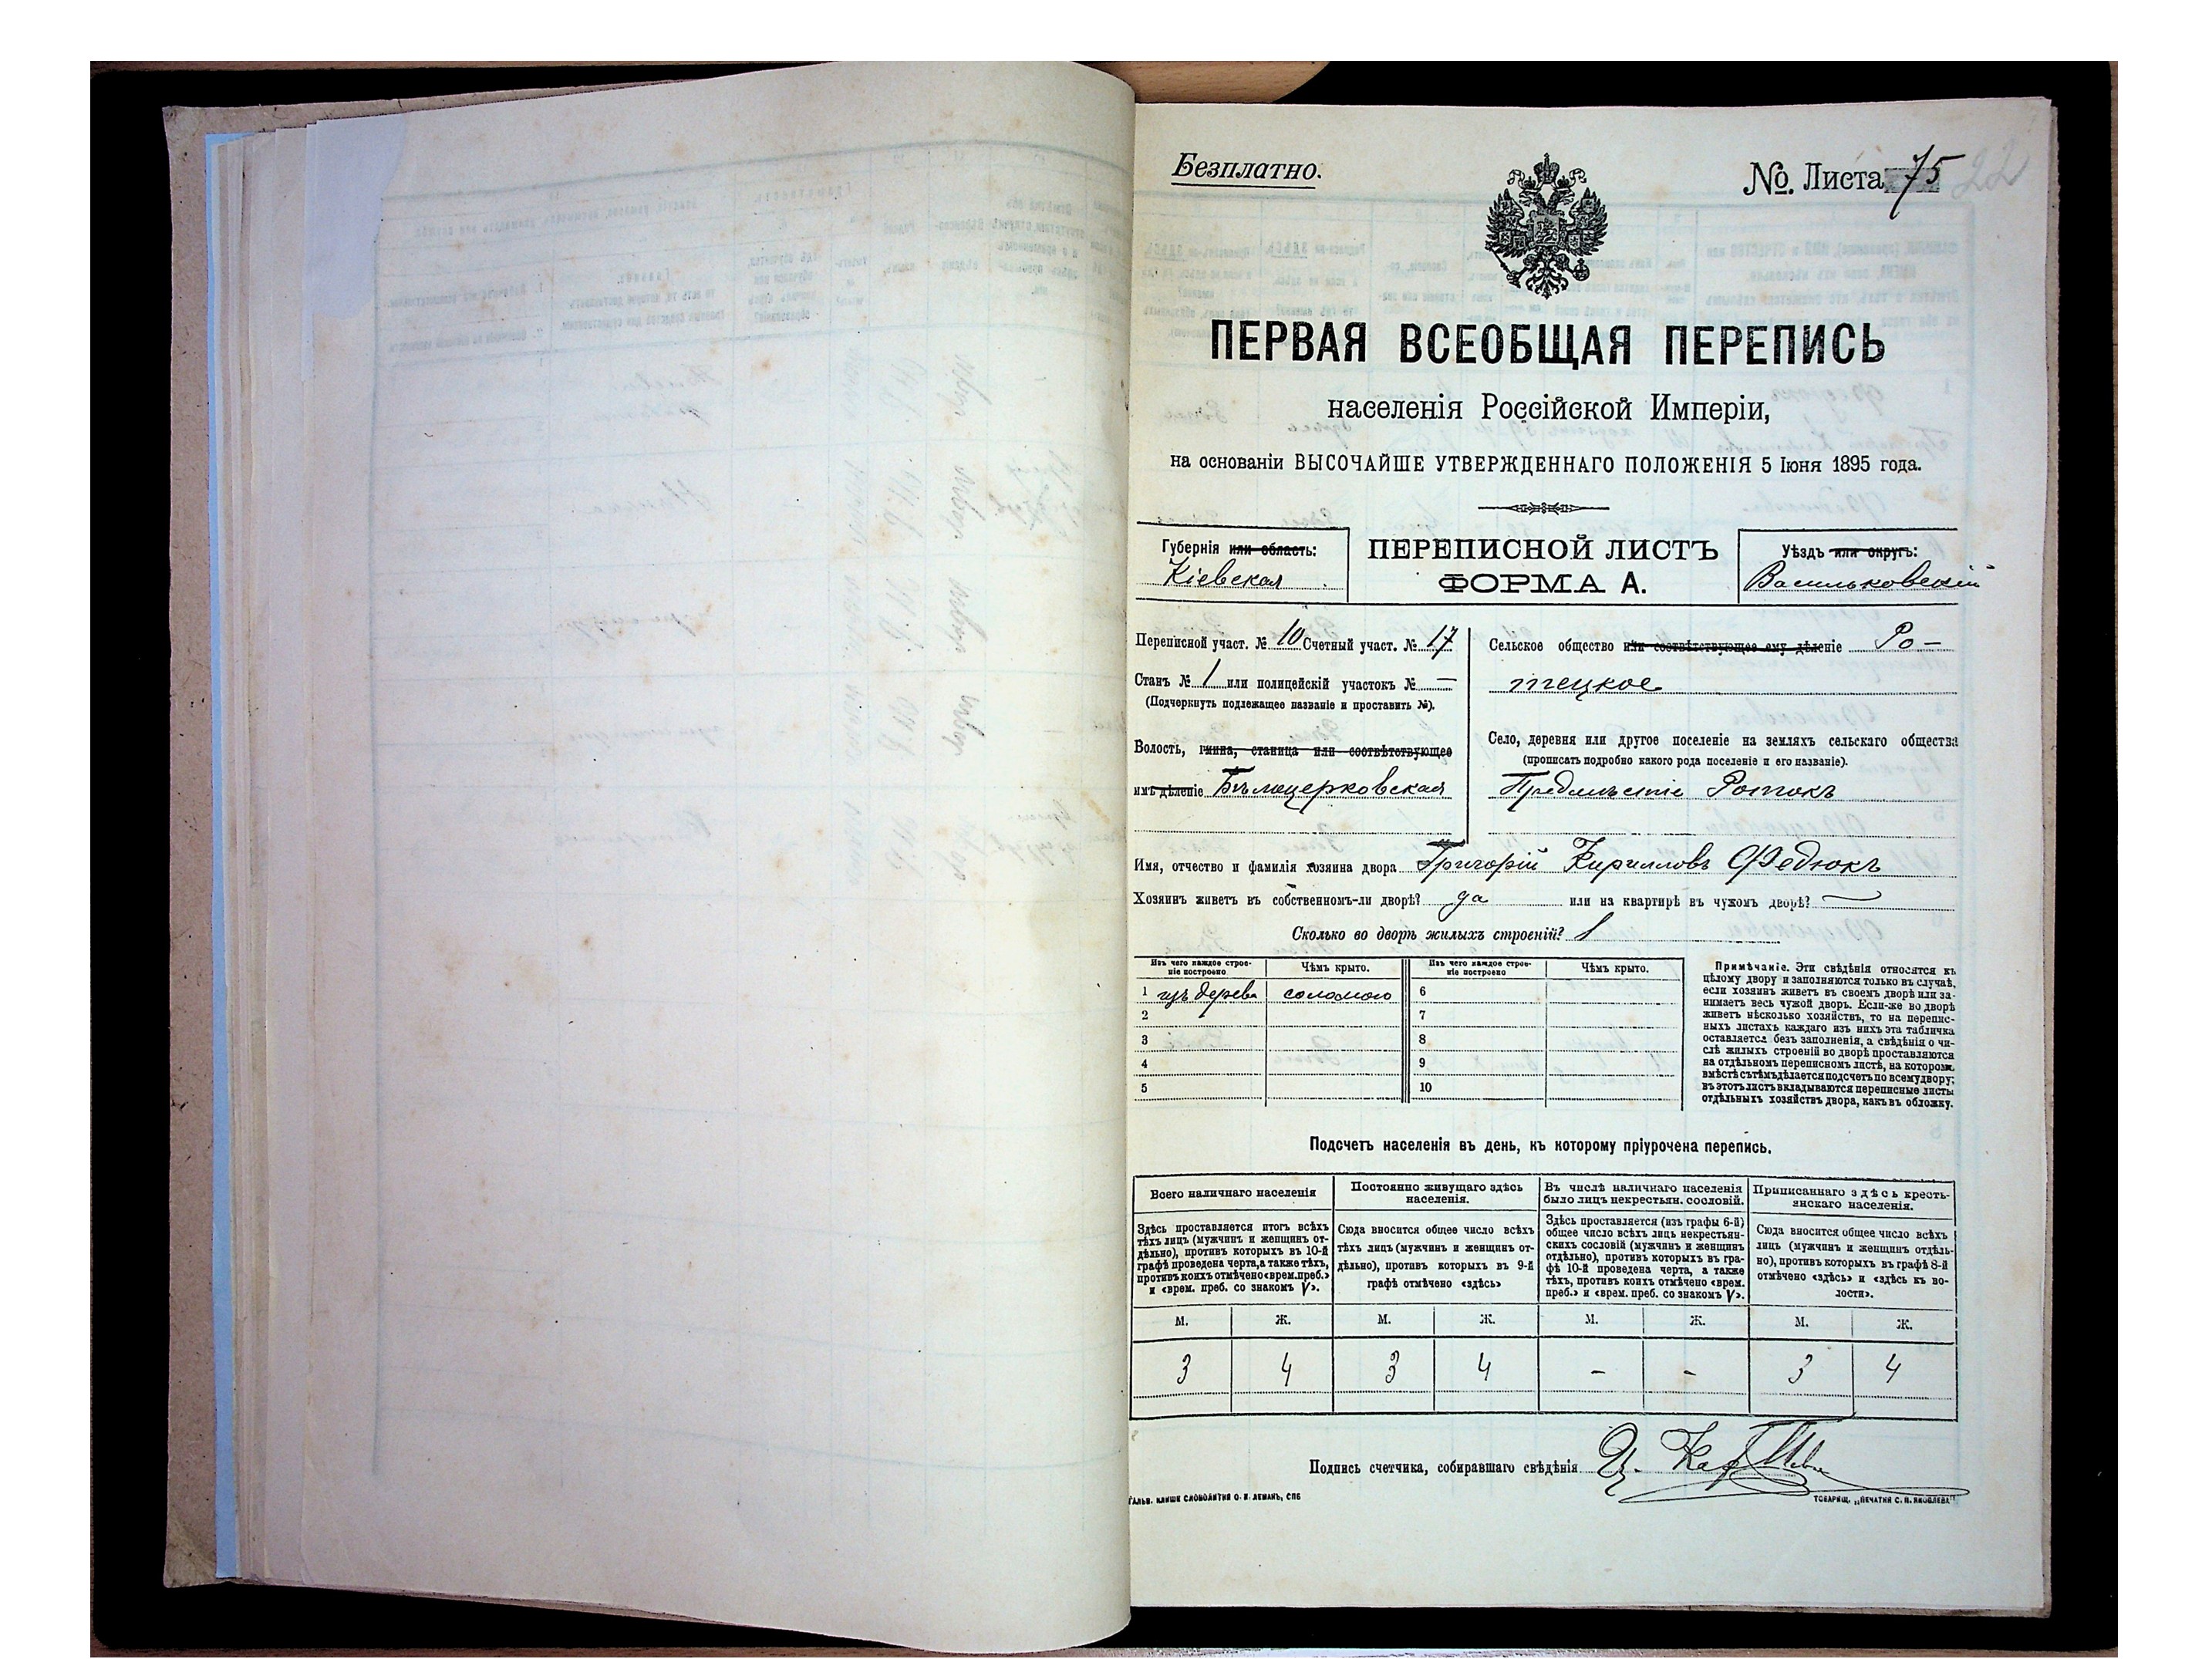 Безплатно.
№. Листа 75
22
ПЕРВАЯ ВСЕОБЩАЯ ПЕРЕПИСЬ
населенія Россійской Имперіи,
на основаніи ВЫСОЧАЙШЕ УТВЕРЖДЕННАГО ПОЛОЖЕНІЯ 5 Іюня 1895 года.
Губернія или область:
Кіевская
ПЕРЕПИСНОЙ ЛИСТЪ
ФОРМА А.
Уѣздъ или округъ:
Васильковскій
Переписной участ. № 10 Счетный участ. № 17
Станъ № 1 или полицейскій участокъ № —
(Подчеркнуть подлежащее названіе и проставить №).
Волость, гмина, станица или соотвѣтствующее
имъ дѣленіе Бѣлоцерковская
Сельское общество или соотвѣтствующее ему дѣленіе Ро-
тецкое
Село, деревня или другое поселеніе на земляхъ сельскаго общества
(прописать подробно какого рода поселеніе и его названіе).
Предмѣстіе Ротокъ
Имя, отчество и фамилія хозяина двора Григорій Кирилловъ Федюкъ
Хозяинъ живетъ въ собственномъ-ли дворѣ? да или на квартирѣ въ чужомъ дворѣ? —
Сколько во дворѣ жилыхъ строеній? 1
Изъ чего каждое строе-
ніе построено
Чѣмъ крыто.
Изъ чего каждое строе-
ніе построено
Чѣмъ крыто.
1 изъ дерева соломою 6
2 7
3 8
4 9
5 10
Примѣчаніе. Эти свѣдѣнія относятся къ
цѣлому двору и заполняются только въ случаѣ,
если хозяинъ живетъ въ своемъ дворѣ или за-
нимаетъ весь чужой дворъ. Если-же во дворѣ
живетъ нѣсколько хозяйствъ, то на перепис-
ныхъ листахъ каждаго изъ нихъ эта табличка
оставляется безъ заполненія, а свѣдѣнія о чи-
слѣ жилыхъ строеній во дворѣ проставляются
на отдѣльномъ переписномъ листѣ, на которомъ
вмѣстѣ съ тѣмъ дѣлается подсчетъ по всему двору;
въ этотъ листъ вкладываются переписные листы
отдѣльныхъ хозяйствъ двора, какъ въ обложку.
Подсчетъ населенія въ день, къ которому пріурочена перепись.
Всего наличнаго населенія
Здѣсь проставляется итогъ всѣхъ
тѣхъ лицъ (мужчинъ и женщинъ от-
дѣльно), противъ которыхъ въ 10-й
графѣ проведена черта, а также тѣхъ,
противъ коихъ отмѣчено «врем. преб.»
и «врем. преб. со знакомъ V».
Постоянно живущаго здѣсь
населенія.
Сюда вносится общее число всѣхъ
тѣхъ лицъ (мужчинъ и женщинъ от-
дѣльно), противъ которыхъ въ 9-й
графѣ отмѣчено «здѣсь»
Въ числѣ наличнаго населенія
было лицъ некрестьян. сословій.
Здѣсь проставляется (изъ графы 6-й)
общее число всѣхъ лицъ некрестьян-
скихъ сословій (мужчинъ и женщинъ
отдѣльно), противъ которыхъ въ гра-
фѣ 10-й проведена черта, а также
тѣхъ, противъ коихъ отмѣчено «врем.
преб.» и «врем. преб. со знакомъ V».
Приписаннаго здѣсь кресть-
янскаго населенія.
Сюда вносится общее число всѣхъ
лицъ (мужчинъ и женщинъ отдѣль-
но), противъ которыхъ въ графѣ 8-й
отмѣчено «здѣсь» и «здѣсь къ во-
лости».
М. Ж. М. Ж. М. Ж. М. Ж.
3 4 3 4 - - 3 4
Подпись счетчика, собиравшаго свѣдѣнія
ГАЛЬВ. КЛИШЕ СЛОВОЛИТНИ О. И. ЛЕМАНЪ, СПБ
ТОВАРИЩ. „ПЕЧАТНЯ С. П. ЯКОВЛЕВА"